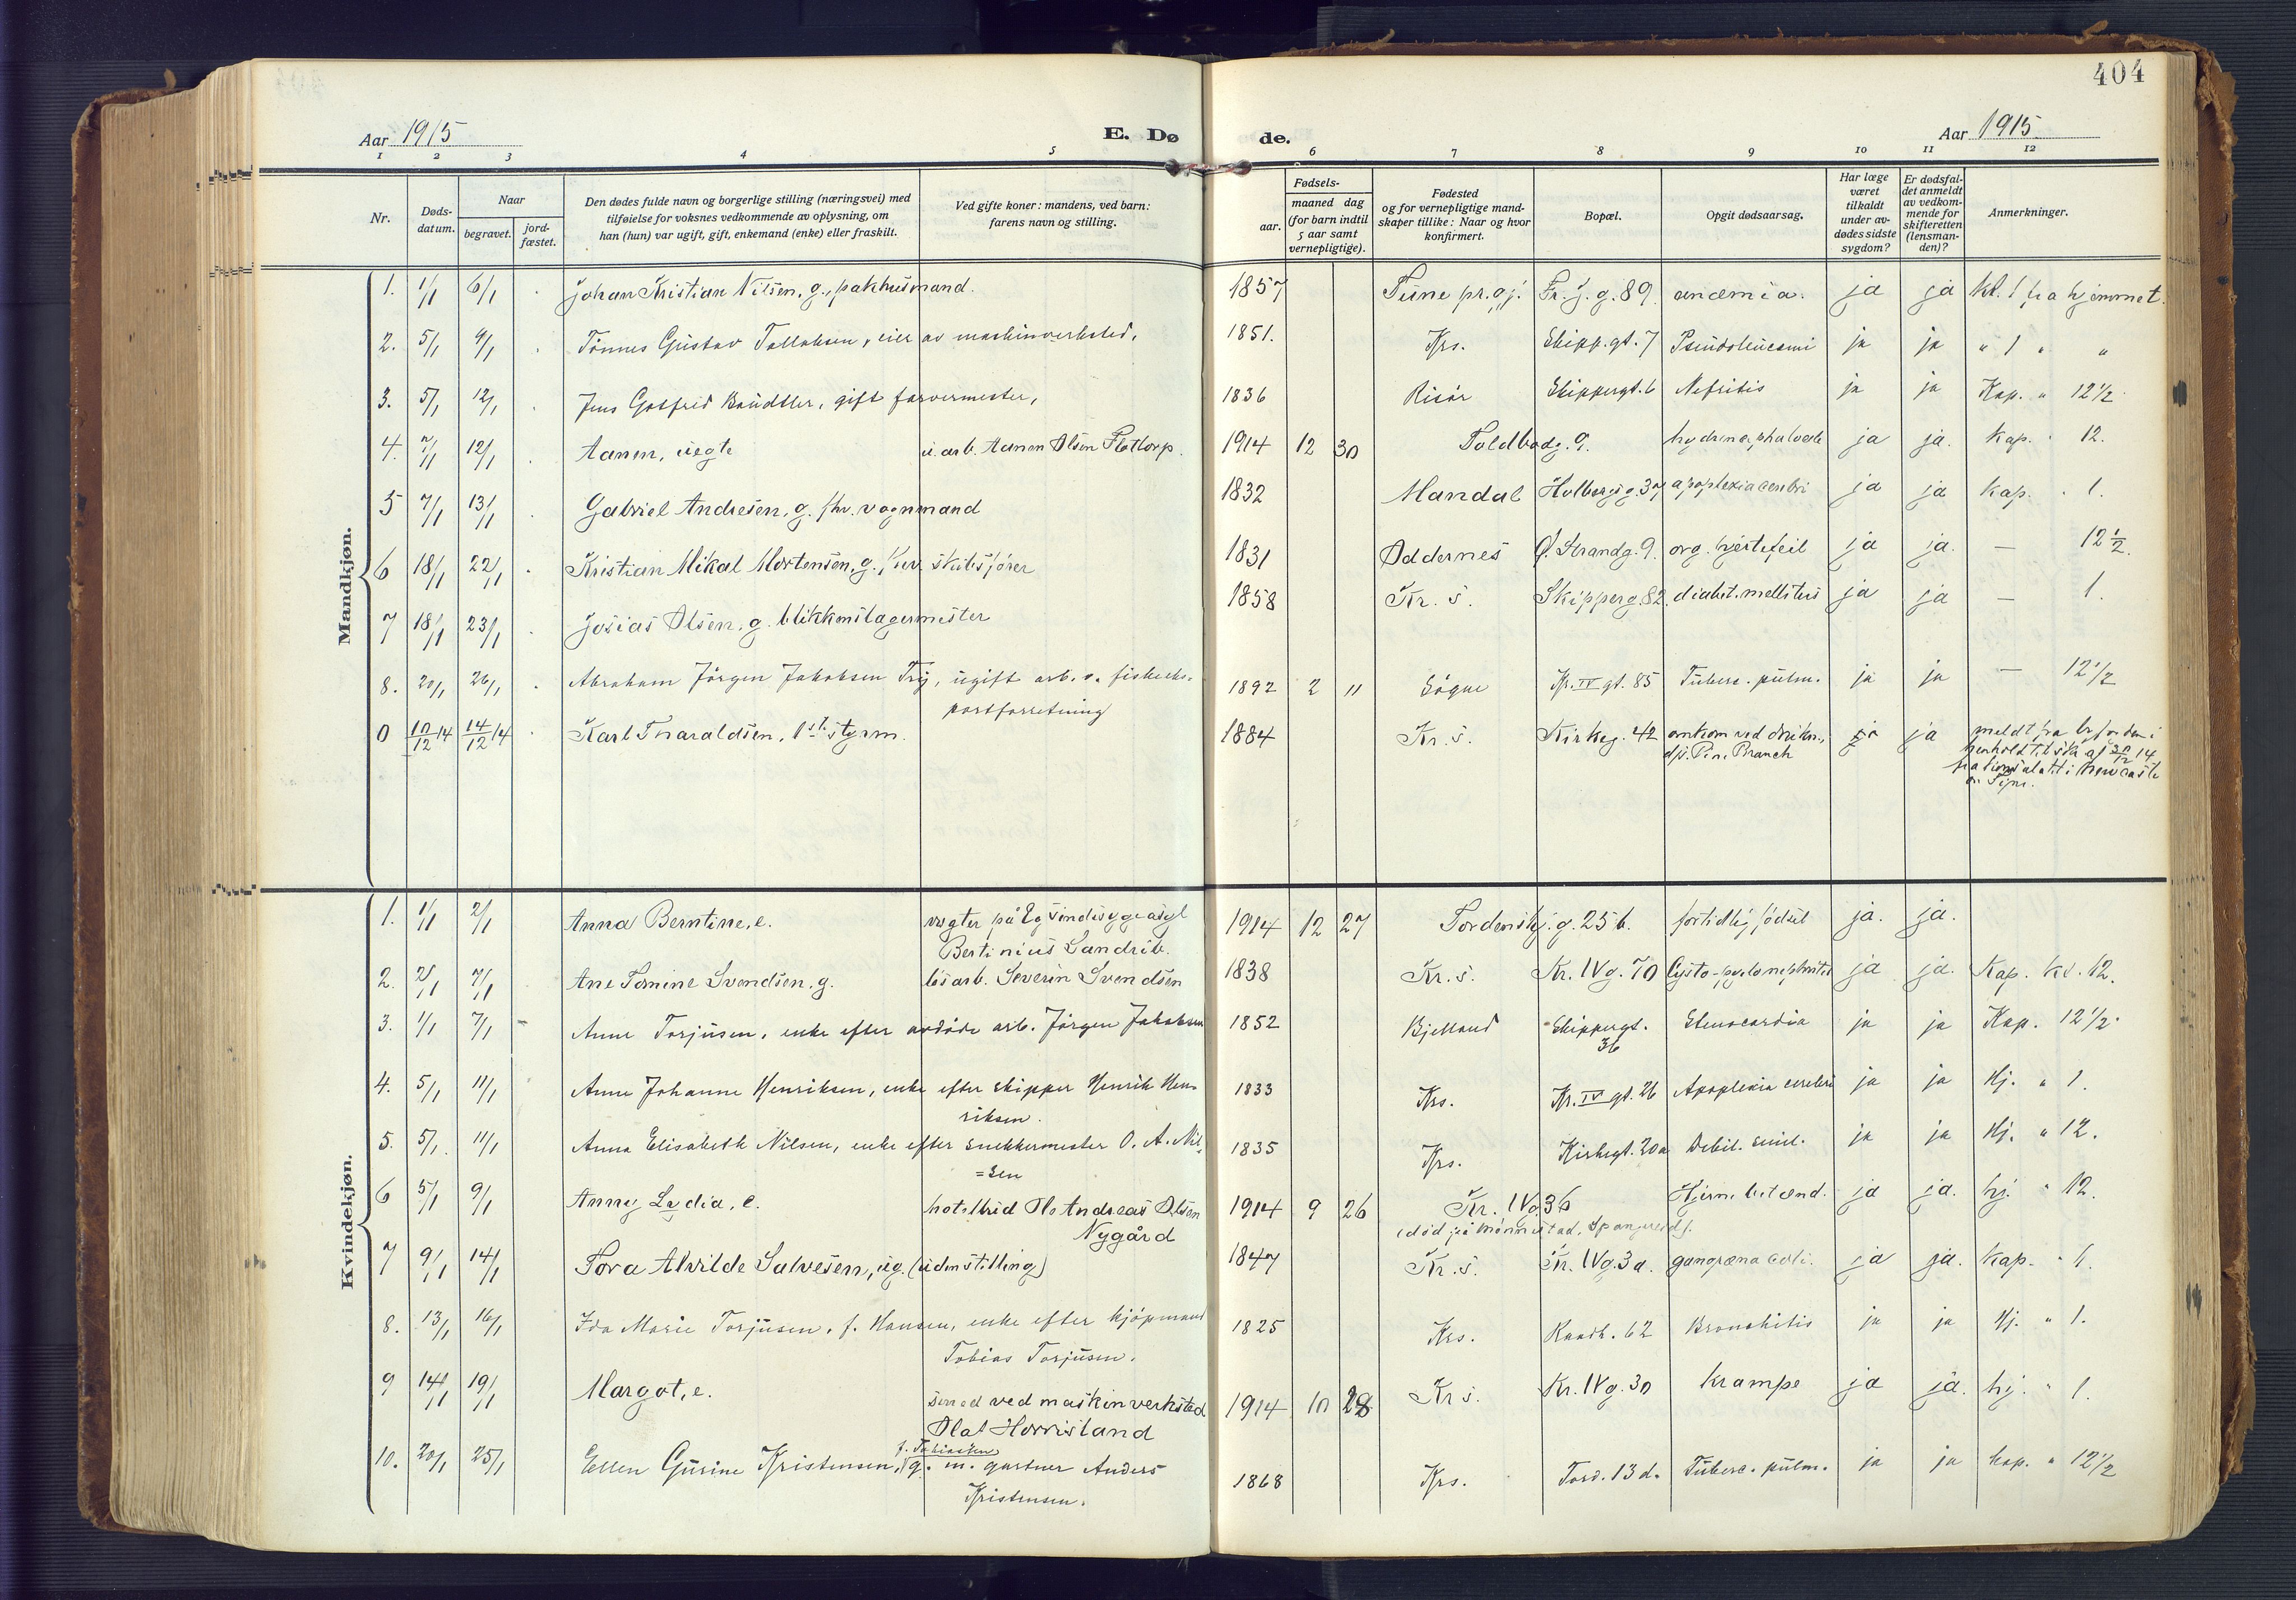 404
Aar 1915 E. Dø de. Aar 1915
1 2 3 4 5 6 7 8 9 10 11 12
Nr. Døds-datum. Naar begravet. jord-fæstet. Den dødes fulde navn og borgerlige stilling (næringsvei) med tilføielse for voksnes vedkommende av oplysning, om han (hun) var ugift, gift, enkemand (enke) eller fraskilt. Ved gifte koner: mandens, ved barn: farens navn og stilling. Fødsels- aar. maaned dag (for barn indtil 5 aar samt vernepligtige). Fødested og for vernepligtige mand-skaper tillike: Naar og hvor konfirmert. Bopæl. Opgit dødsaarsag. Har læge været tilkaldt under av-dødes sidste sygdom? Er dødsfal-det anmeldt av vedkom-mende for skifteretten (lensman-den)? Anmerkninger.
Mandkjøn.
1. 1/1 6/1 Johan Kristian Nilsen, g., pakhusmand. 1857 Tune pr. Fr. j. g. 89. anæmia. ja ja kl. 1 fra hjemmet.
2. 5/1 9/1 Tönnes Gustav Tallaksen, eier av maskinverksted, 1851. Krs. Skipp. gt. 7 Pseudoleucæmi ja ja " 1 " "
3. 5/1 12/1 Jens Gotfried gift farvermester, 1836 Risör Skippergt. 6 Nefritis ja ja Kap. " 12 1/2
4. 7/1 12/1 Aanen, uegte u. arb. Aanen Olsen Flottorp. 1914 12 30 Toldbodg. 9. ja ja. Kap. " 12.
5 7/1 13/1 Gabriel Andresen, g. fhv. vognmand 1832 Mandal Holbergsg. 37 apoplexia cerebri ja ja Kap. " 1.
6 18/1 22/1 Kristian Mikal Mortensen, g., skibsfører 1831 Oddernes Ø. Strandg. 9. org. hjertefeil ja ja. — 12 1/2.
7 18/1 23/1 Josias Olsen, g. blikkenslagermester 1858 Kr. s. Skipperg. 82. diabet. mellitus ja ja — 1.
8. 20/1 26/1 Abraham Jörgen Jakobsen Try, ugift arb. v. fiskeeks-
portforretning 1892 2 11 Sögne Kr. IV gt. 85 Tuberc. pulm. ja ja — 12 1/2
0 10/12 14 14/12 14 Karl Tharaldsen, 1ste styrm. 1884 Kr. s. Kirkeg. 42 omkom ved drukn., ja meldt fra
d/s. Pine Branch henhold til
fra konsulatet i Newcastle
Kvindekjøn.
1. 1/1 2/1 Anna Berntine, e. vogter på Eg sindsygeasyl
Bertinius Sandrib. 1914 12 27 Tordenskj. g. 25 b. fortidlig födsel ja. ja.
2. 2/1 7/1 Ane Tomine Svendsen, g. løsarb. Severin Svendsen 1838 Kr. s. Kr. IV g. 70 Cysto-pyelonephritis ja ja. Kap. kl. 12.
3. 1/1 7/1 Anne Torjusen, enke efter avdöde arb. Jörgen Jakobsen 1852 Bjelland Skippergt. 36 Stenocardia ja ja Kap. 12 1/2.
4. 5/1 11/1 Anne Johanne Henriksen, enke efter skipper Henrik Hen-
riksen. 1833 Krs. Kr. IV gt. 26 Apoplexia cerebri ja ja Hj. " 1.
5. 5/1. 11/1 Anna Elisabeth Nilsen, enke efter snekkermester O. A. Nil-
=sen 1835 Krs. Kirkegt. 20a Debil. senil. ja ja Hj. " 12.
6 5/1 9/1 Anny Lydia, e. hotelbud Ole Andreas Olsen
Nygård 1914 9 26 Kr. IV g. 36 Hjernebetænd. ja ja. hj. " 12.
(död på Mönnestad, Spangereid).
7 9/1 14/1 Tora Alvilde Salvesen, ug. (uden stilling) 1847 Kr. s. Kr. IV g. 3a. gangræna coli. ja ja. Kap. " 1.
8. 13/1 16/1 Ida Marie Torjusen, f. Hansen, enke efter kjöpmand
Tobias Torjusen. 1825 Krs. Raadh. 62 Bronchitis ja ja Hj. " 1.
9 14/1 19/1 Margot, e. smed ved maskinverksted
Olaf Horrisland 1914 10 28 Kr s. Kr. IV g. 30 Krampe ja ja. hj. " 1.
f. Tobiassen
10. 20/1 25/1 Ellen Gurine Kristensen, g. m. gartner Anders
Kristensen. 1868 Krs. Tord. 13 d. Tuberc. pulm. ja ja Kap. " 12 1/2